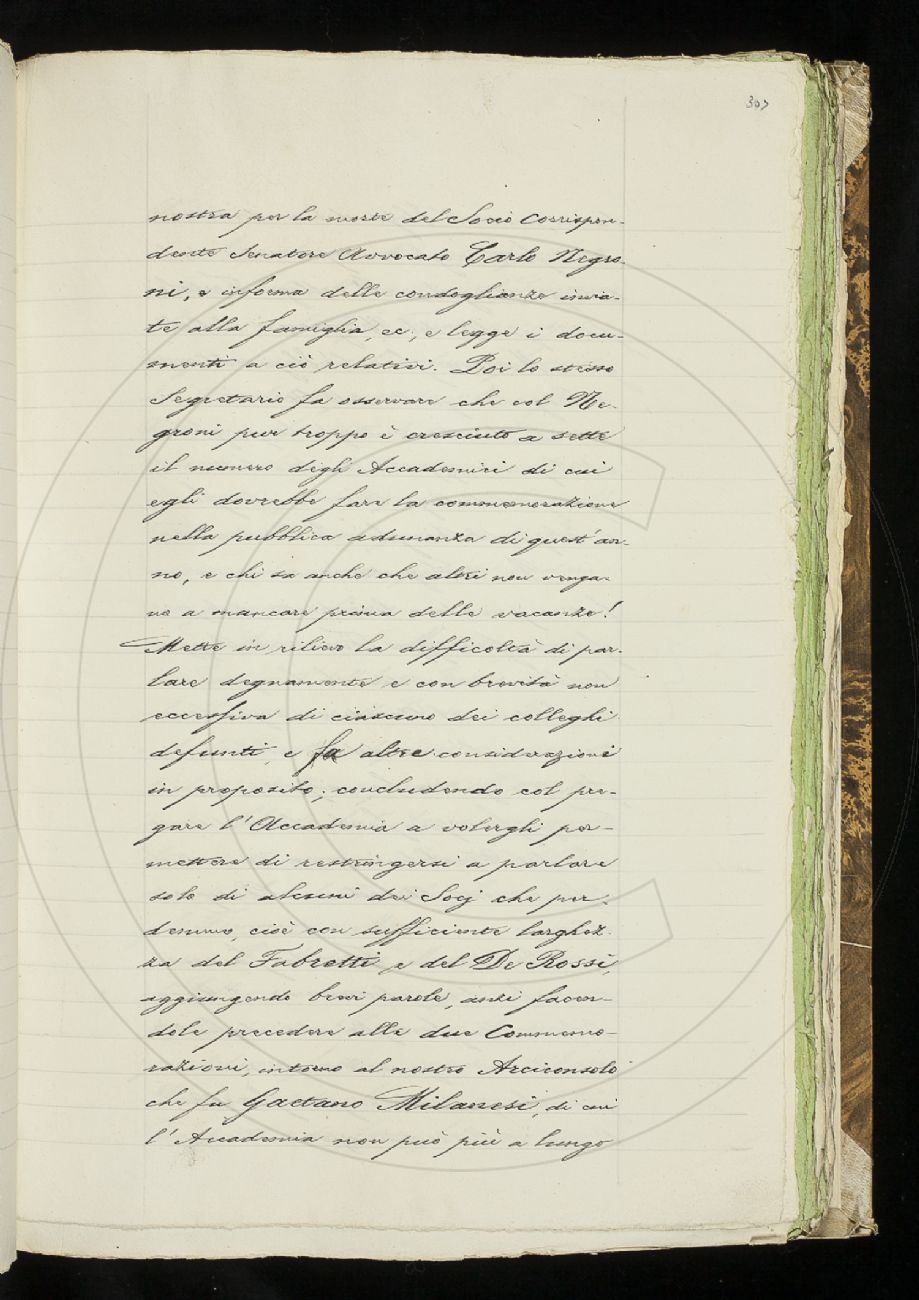 307
nostra per la morte del Socio Corrispon-
dente Senatore Avvocato Carlo Negro-
ni, e informa delle condoglianze invia-
te alla famiglia, ec., e legge i docu-
menti a ciò relativi. Poi lo stesso
Segretario fa osservare che col Ne-
groni pur troppo è cresciuto a sette
il numero degli Accademici di cui
egli dovrebbe fare la commemorazione
nella pubblica adunanza di quest'an-
no, e chi sa anche che altri non venga-
no a mancare prima delle vacanze!
Mette in rilievo la difficoltà di par-
lare degnamente e con brevità non
eccessiva di ciascuno dei colleghi
defunti, e fa altre considerazioni
in proposito; concludendo col pre-
gare l'Accademia a volergli per-
mettere di restringersi a parlare
solo di alcuni dei Socj che per-
demmo, cioè con sufficiente larghez-
za del Fabretti e del De Rossi,
aggiungendo brevi parole, anzi facen-
dole precedere alle due Commemo-
razioni, intorno al nostro Arciconsolo
che fu Gaetano Milanesi, di cui
l'Accademia non può più a lungo